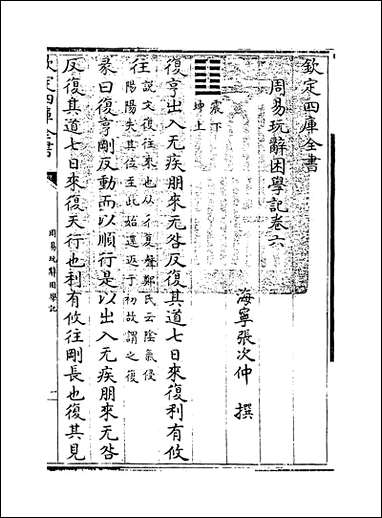 欽定四庫全書
周易玩辭困學記卷六
海寧張次仲 撰
震下
坤上
復亨出入无疾朋來无咎反復其道七日來復利有攸
往
説文復往來也从彳复聲鄭氏云陰氣侵
陽陽失其位至此始還返于初故謂之復
彖曰復亨剛反動而以順行是以出入无疾朋來无咎
反復其道七日來復天行也利有攸往剛長也復其見
欽定四庫全書
周易玩辭困學記
一